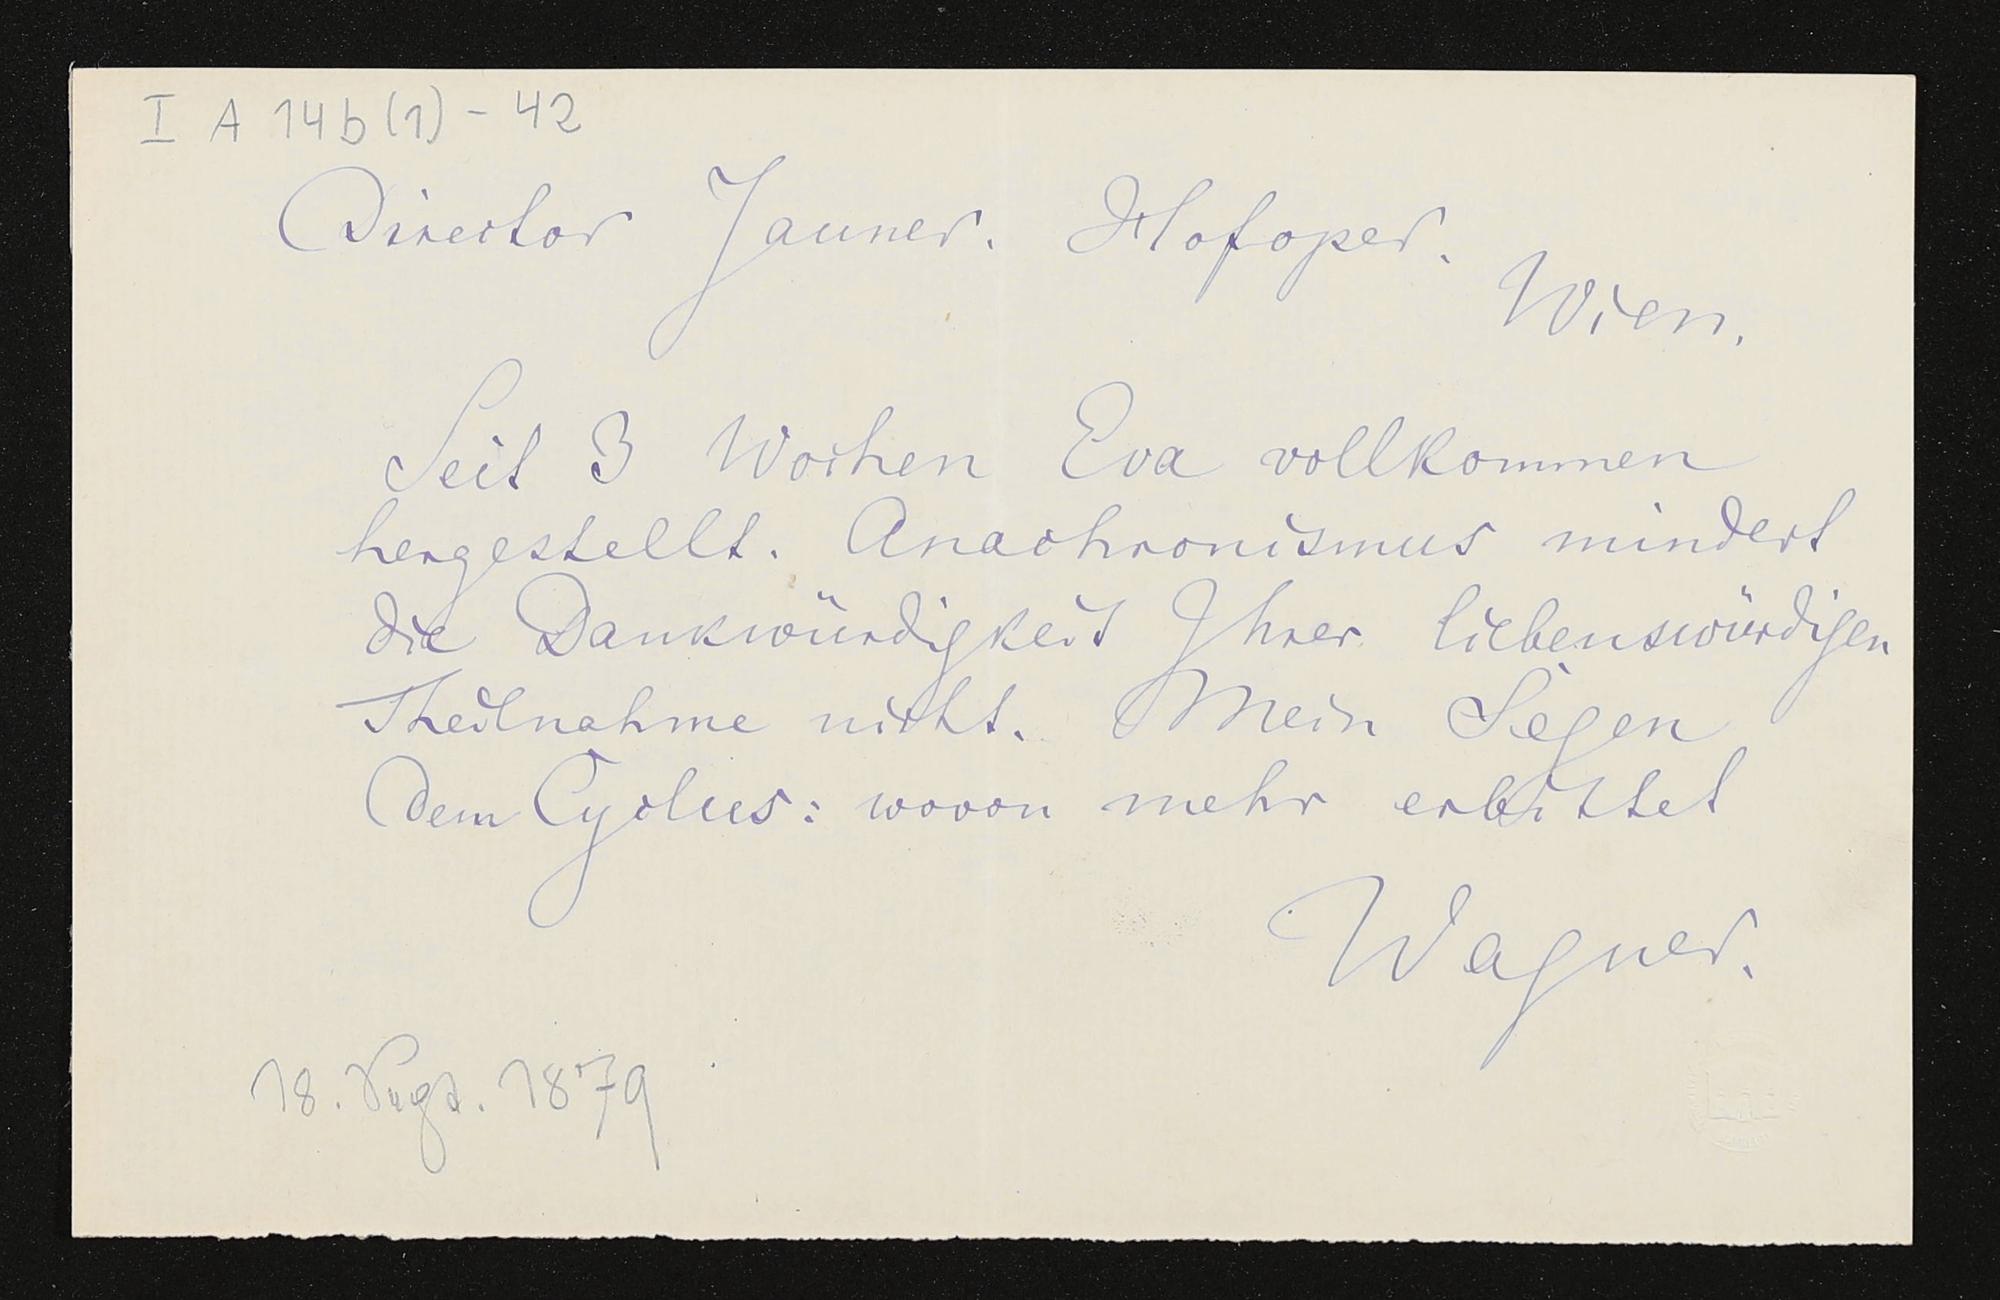 I A 14b(1) - 42
Director Jauner. Hofoper.
Wien.
Seit 3 Wochen Eva vollkommen
hergestellt. Anachronismus mindert
die Dankwürdigkeit Ihrer liebenswürdigen
Theilnahme nicht. Mein Segen
dem Cyclus: wovon mehr erbittet
Wagner.
18. 1879